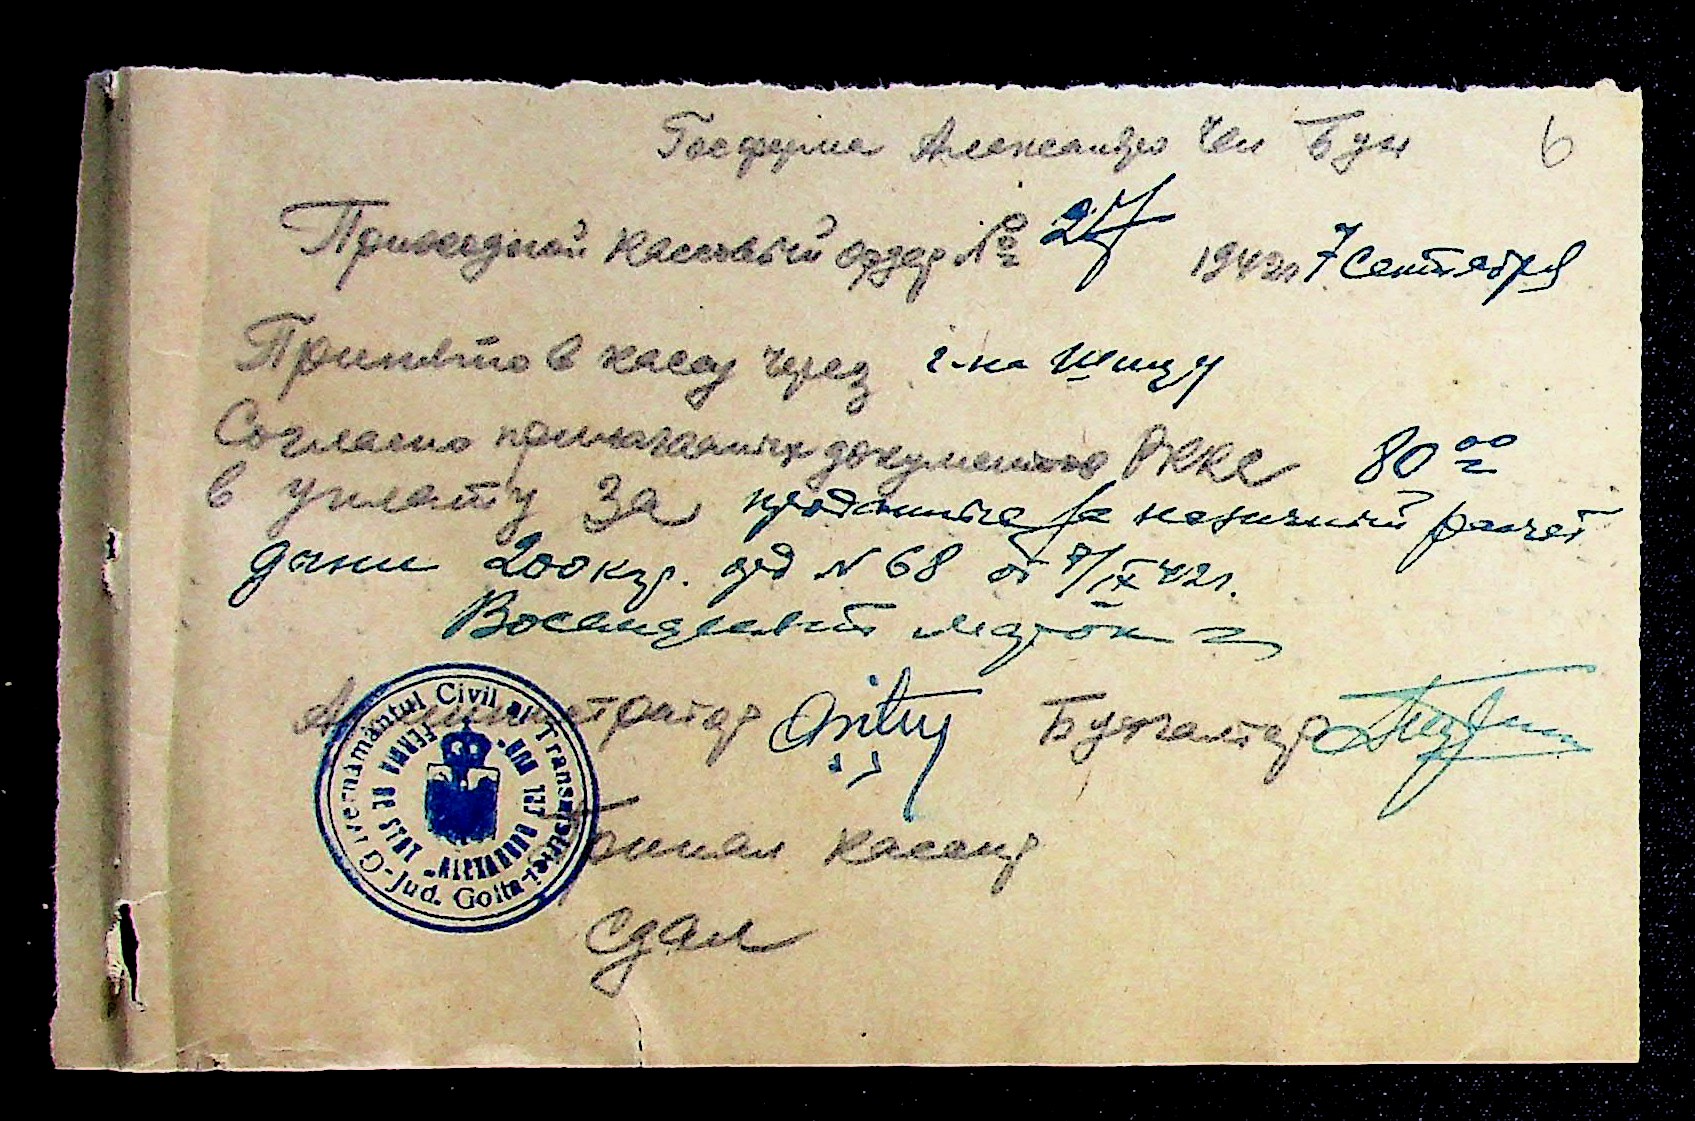 Госферма Александро Чел Бун 6
Приходной кассовый ордер № 27 1942г 7 Сентября
Принято в кассу через г-на
Согласно документов РККС 80 00
в уплату за проданные за наличный расчет
дыни 200 кгр. № 68 от 7/IX 42г.
Восемдесят марок
Администратор Бухгалтер
Guvernământul Civil al Transnistriei - Jud. Golta -
FERMA DE STAT "ALEXANDRU CEL BUN"
Принял кассир
Сдал